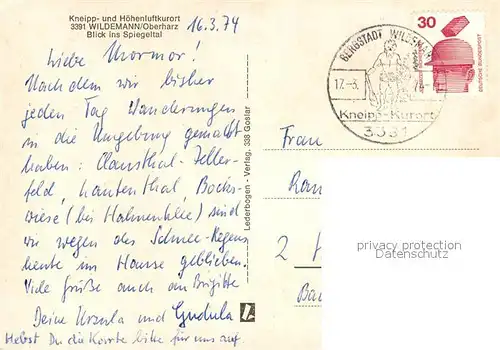 Kneipp- und Höhenluftkurort
3391 WILDEMANN/Oberharz
Blick ins Spiegeltal
16.3.74
Liebe Mormor!
Nachdem wir bisher
jeden Tag Wanderungen
in die Umgebung gemacht
haben: Clausthal-Zeller-
feld, Lautenthal, Bocks-
wiese (bei Hahnenklee) sind
wir wegen des Schnee-Regens
heute im Hause geblieben.
Viele Grüße auch an Brigitte
Deine Ursula und Gundula
Hebst Du die Karte bitte für uns auf.
Lederbogen - Verlag, 338 Goslar
BERGSTADT WILDEMANN
17.-3.
Kneipp-Kurort
3391
30
DEUTSCHE BUNDESPOST
Frau
2
privacy protection
Datenschutz